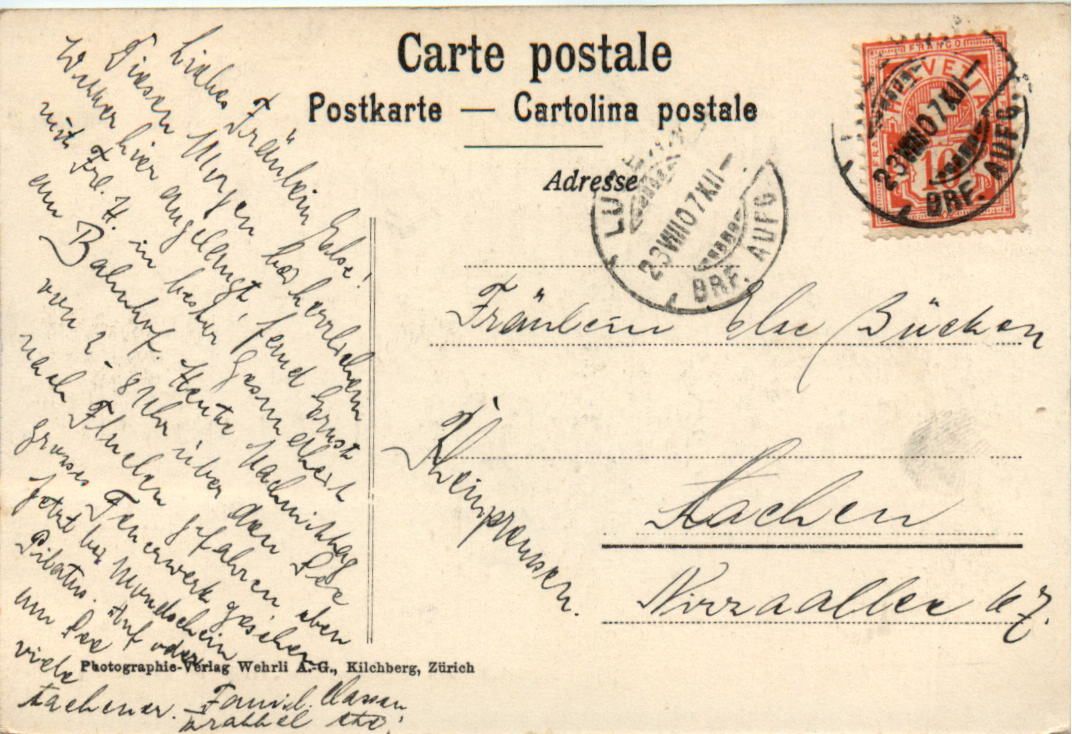 Carte postale
Postkarte — Cartolina postale
Adresse
FRANCO
HELVETIA
10
LUZERN
23 VIII 07 XII
BRF. AUFG.
LUZERN
23 VIII 07 XII—
BRF. AUFG
Fräulein Else Bücken
Aachen
Rheinpreussen.
Nizzaallee 67.
Liebes Fräulein Else!
Diesen Morgen bei herrlichem
Wetter hier angelangt, fand Ernst
mit Frl. H. in bester Gesundheit
am Bahnhof. Heute Nachmittag
von 2 - 8 Uhr über den See
nach Fluelen gefahren eben
grosses Feuerwerk gesehen
Jetzt bei Mondschein
Pilatus. Auf oder
am See
viele
Aachener. Famil. Classen
etc!
Photographie-Verlag Wehrli A.-G., Kilchberg, Zürich